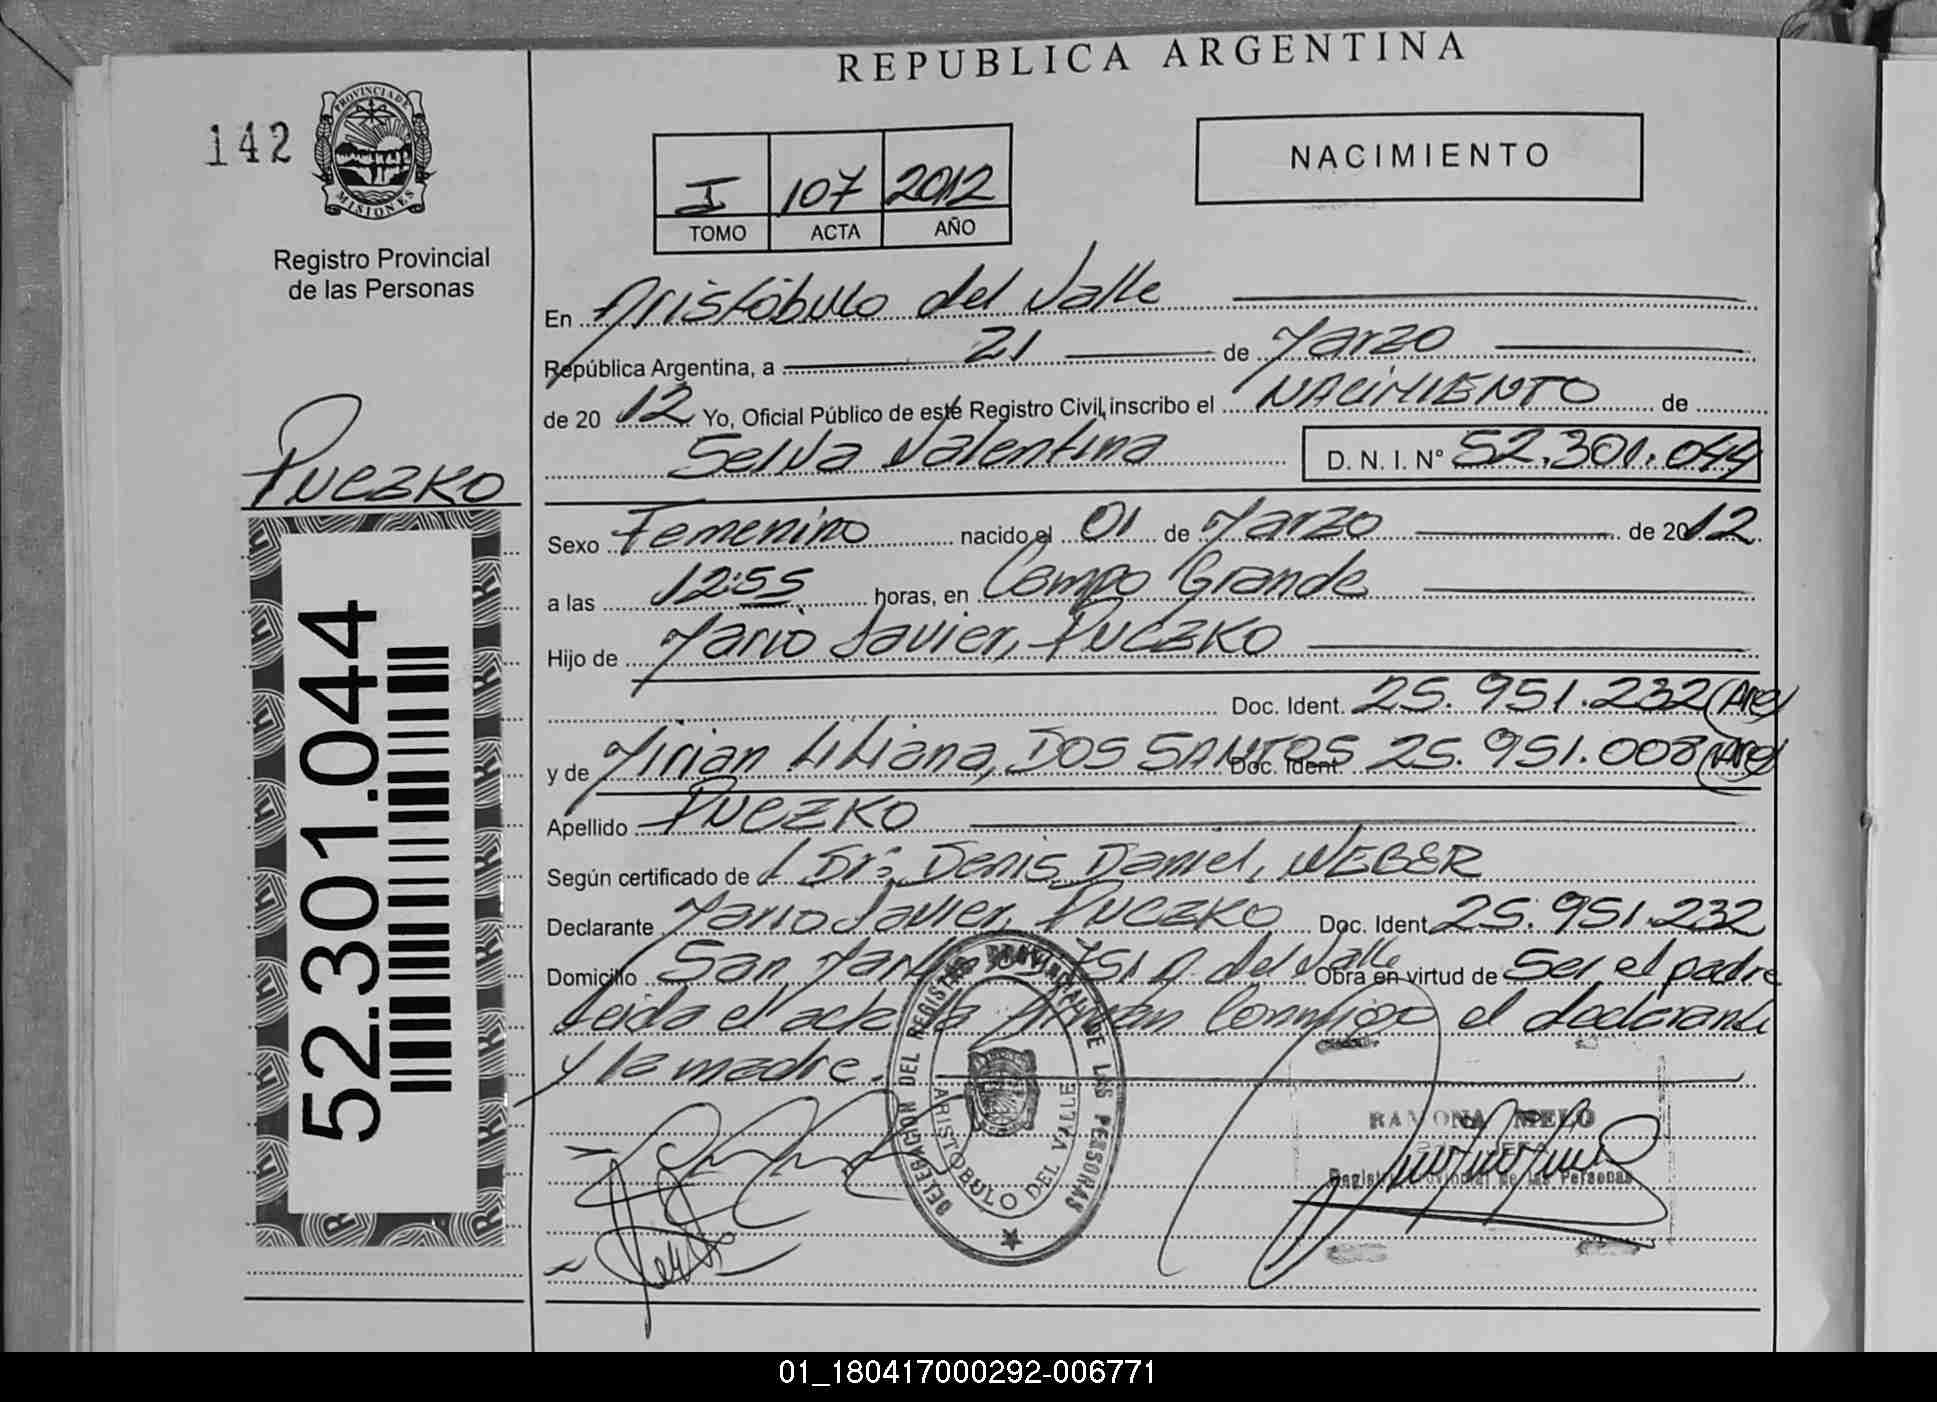 REPUBLICA ARGENTINA
142
PROVINCIA DE
MISIONES
Registro Provincial
de las Personas
NACIMIENTO
I 107 2012
TOMO ACTA AÑO
En Aristóbulo del Valle
República Argentina, a 21 de Marzo
de 2012 Yo, Oficial Público de este Registro Civil, inscribo el NACIMIENTO de
Selva Valentina D. N. I. N° 52.301.044
PUCZKO
52.301.044
Sexo Femenino nacido el 01 de Marzo de 2012
a las 12:55 horas, en Campo Grande
Hijo de Mario Javier, PUCZKO
Doc. Ident. 25.951.232 (Arg)
y de Mirian Liliana, DOS SANTOS Doc. Ident. 25.951.008 (Arg)
Apellido PUCZKO
Según certificado de l Dr: Denis Daniel, WEBER
Declarante Mario Javier, PUCZKO Doc. Ident. 25.951.232
Domicilio San Martín A. del Valle Obra en virtud de Ser el padre
Leida el acta la firman Conmigo el declarante
y la madre.
DELEGACION DEL REGISTRO PROVINCIAL DE LAS PERSONAS
ARISTOBULO DEL VALLE
RAMONA MELO
Registro Provincial de las Personas
01_180417000292-006771